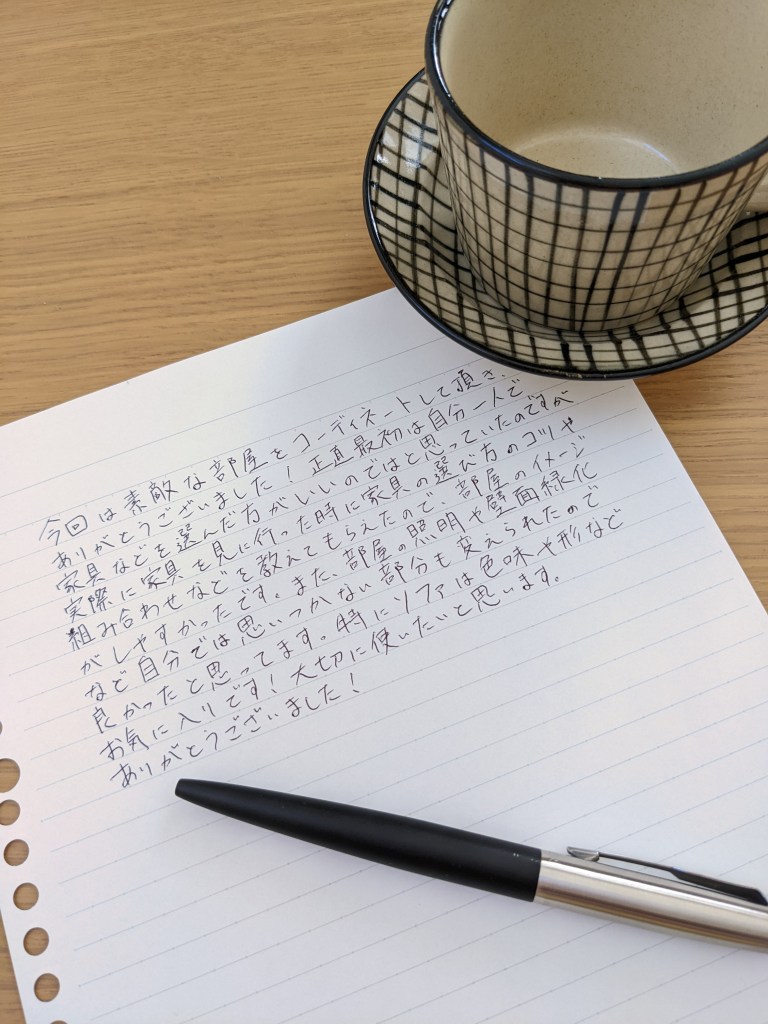 今回は素敵な部屋をコーディネートして頂き、
ありがとうございました！正直最初は自分一人で
家具などを選んだ方がいいのではと思っていたのですが
実際に家具を見に行った時に家具の選び方のコツや
組み合わせなどを教えてもらえたので、部屋のイメージ
がしやすかったです。また、部屋の照明や壁面緑化
など自分では思いつかない部分も変えられたので
良かったと思ってます。特にソファは色味や形など
お気に入りです！大切に使いたいと思います。
ありがとうございました！